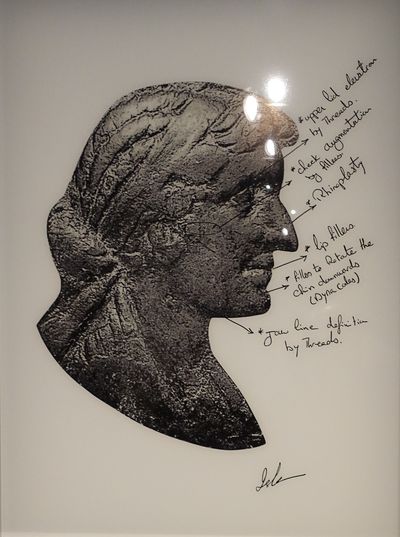 * upper lid elevation
by Threads.
* cheek augmentation
by fillers
* Rhinoplasty
* lip fillers
* fillers to Rotate the
chin downwards
* jaw line definition
by Threads.